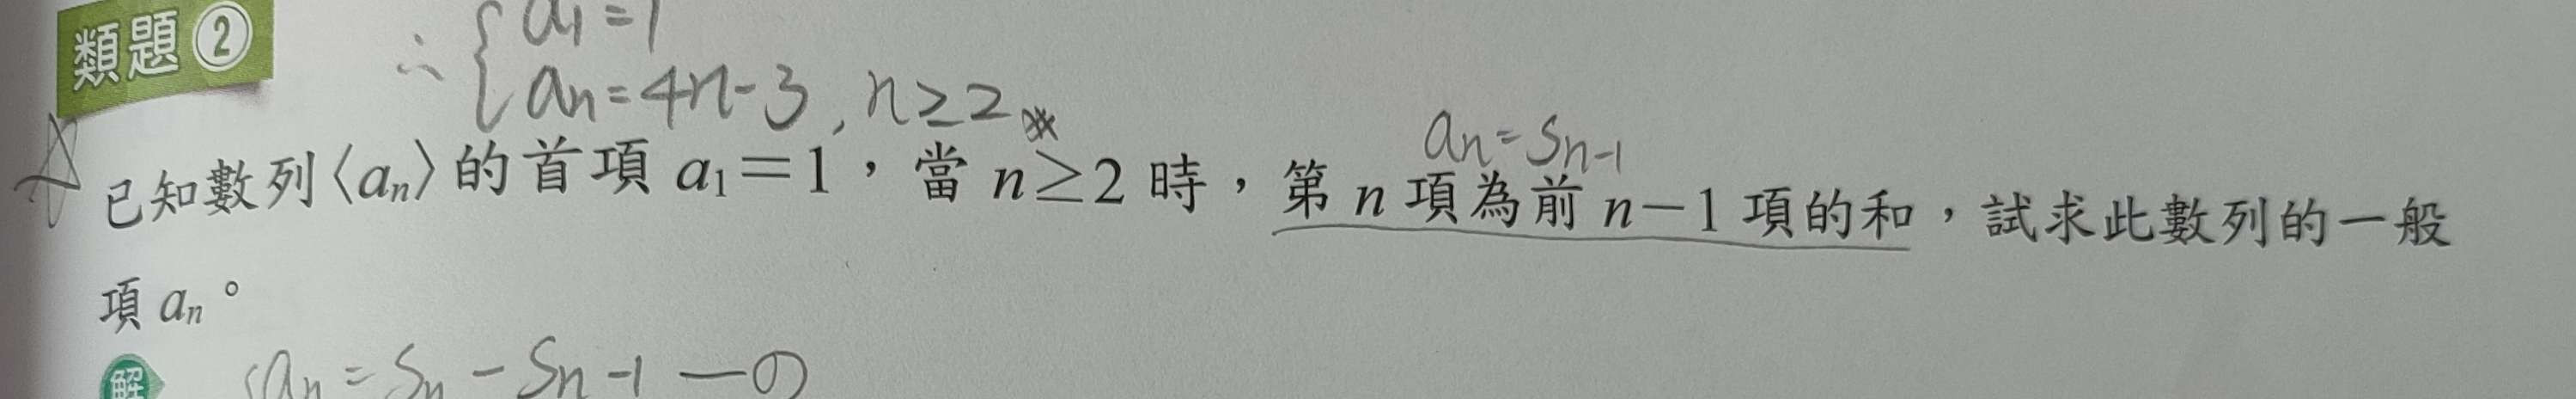 類題②
∴ { a₁=1
aₙ=4n-3, n≥2
aₙ=Sₙ₋₁
已知數列〈aₙ〉的首項 a₁=1,當 n≥2 時,第 n 項為前 n-1 項的和,試求此數列的一般
項 aₙ。
解 { aₙ=Sₙ-Sₙ₋₁ —①